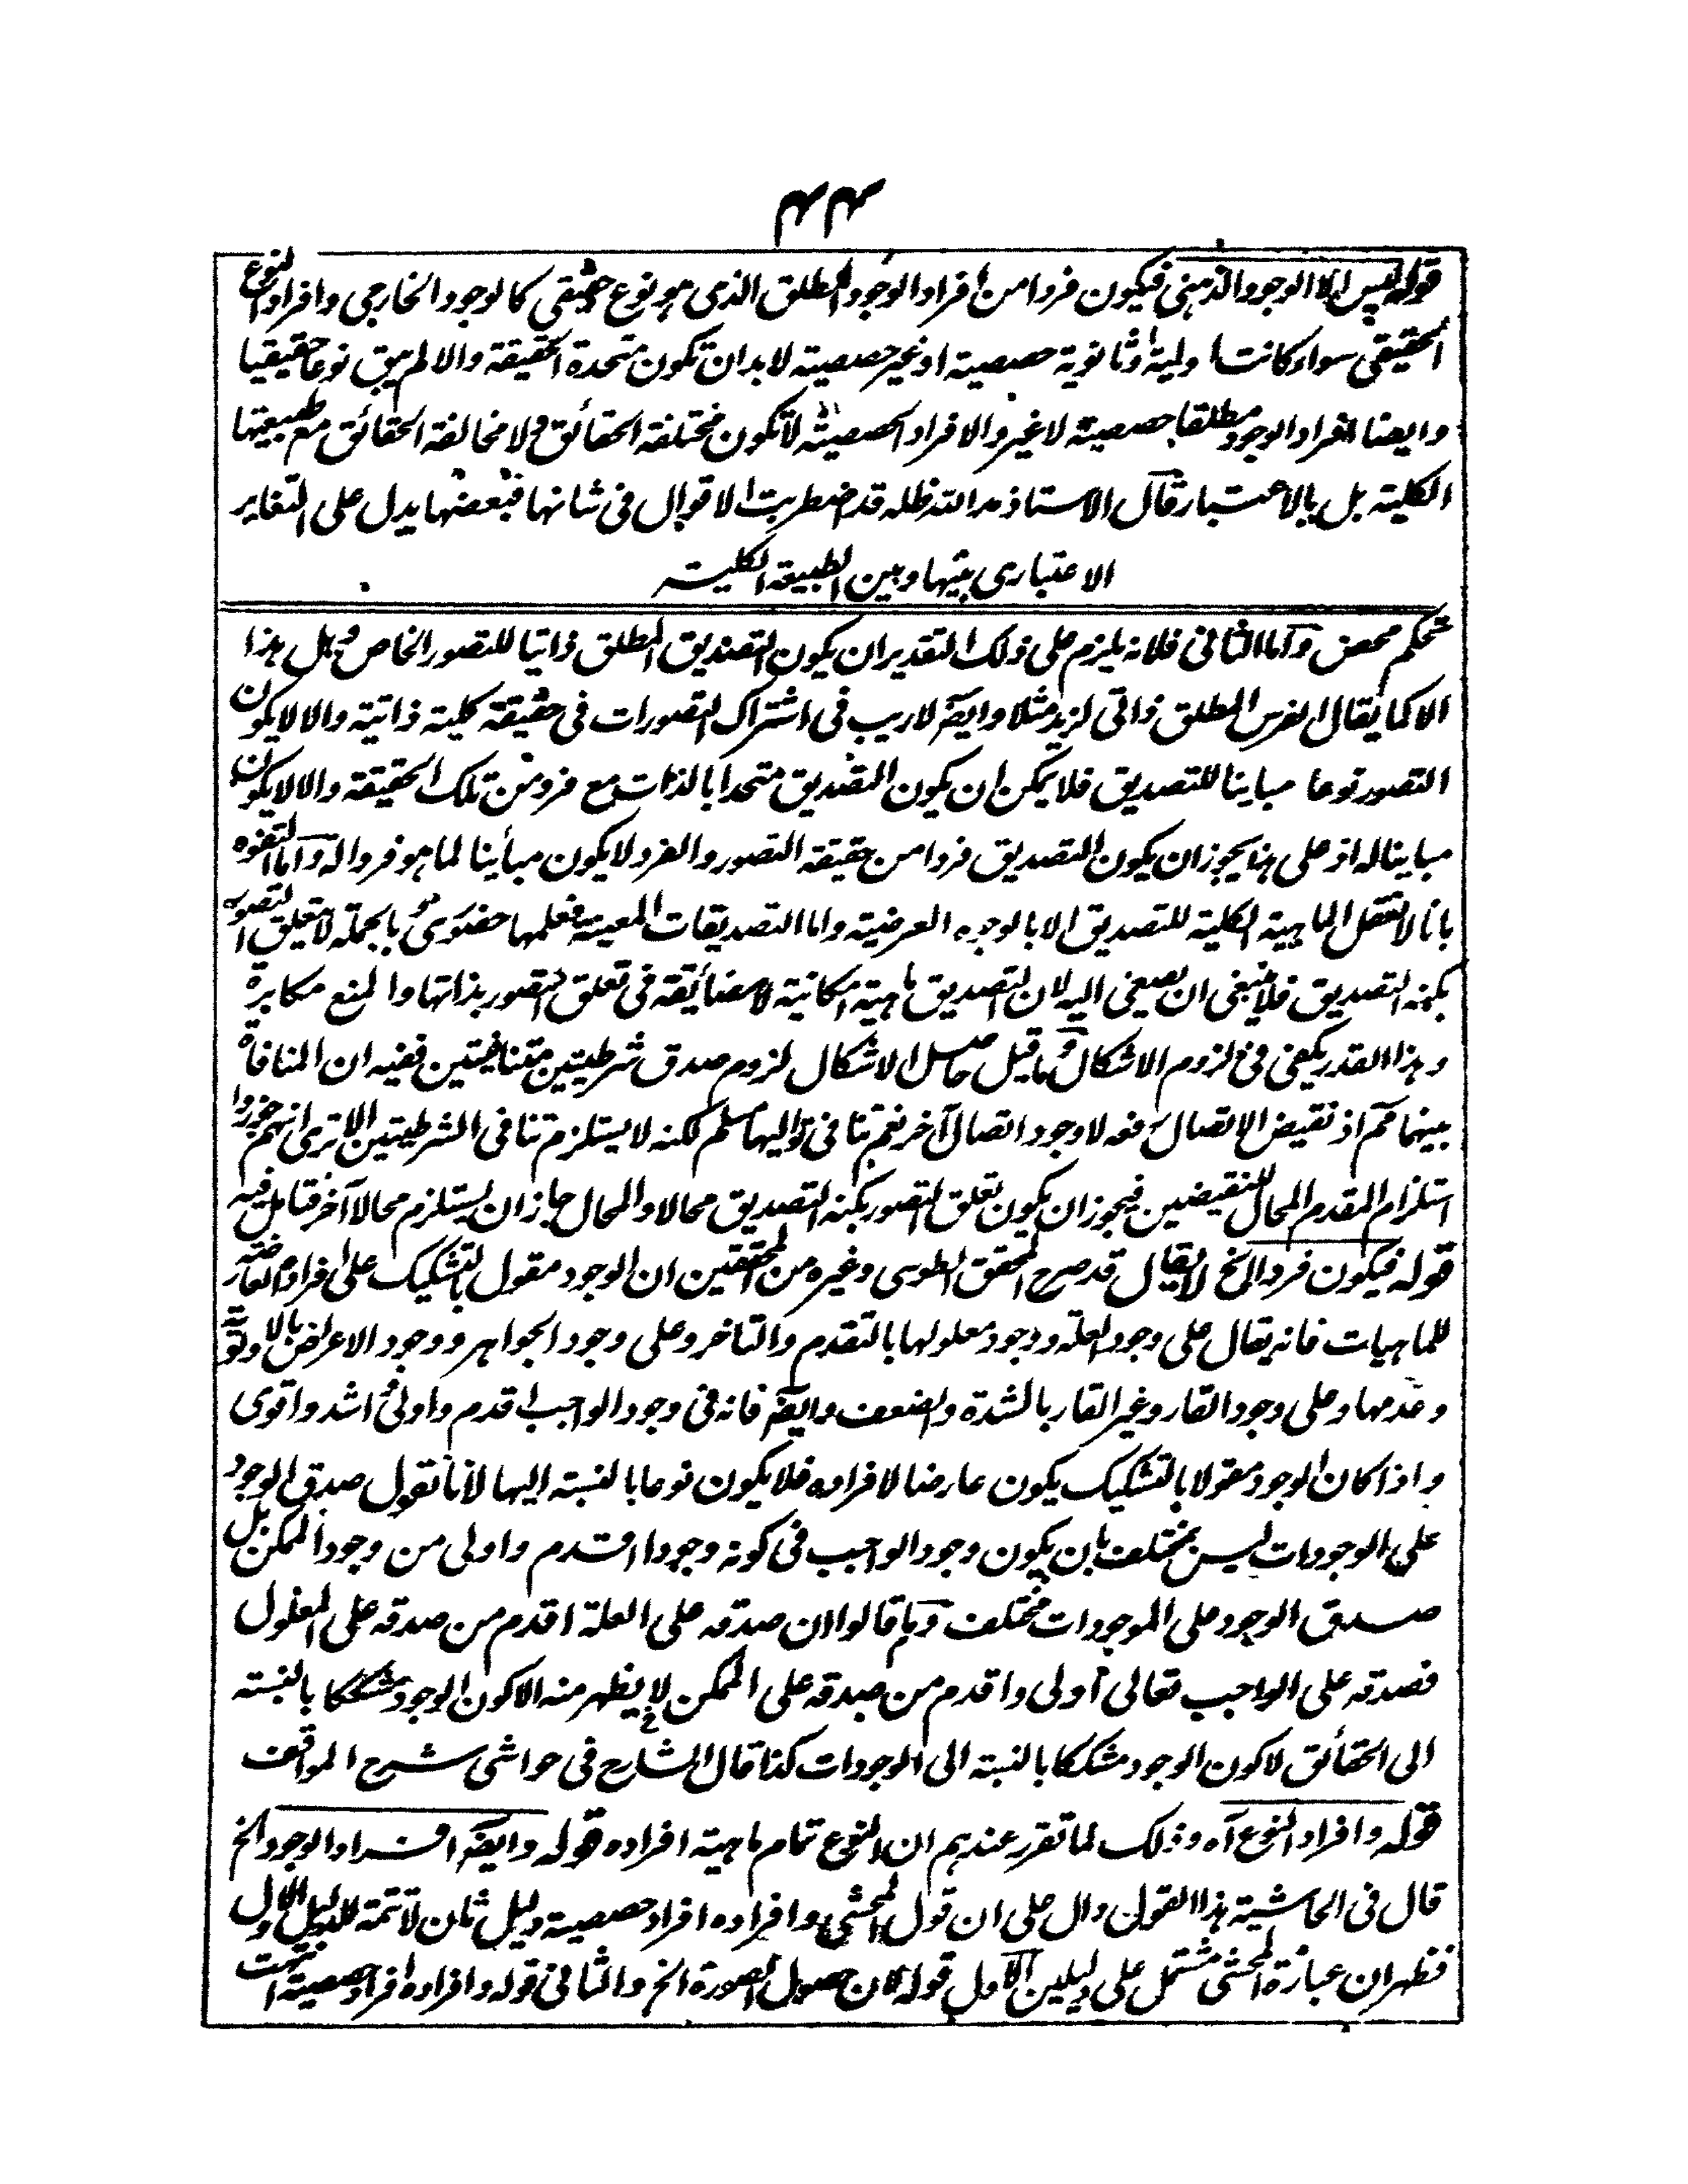 ۴۴
قوله ليس الا الوجود الذهني فيكون فردا من افراد الوجود المطلق الذي هو نوع حقيقي كالوجود الخارجي وافراد النوع
الحقيقي سواء كانت اولية او ثانوية حصصية او غير حصصية لا بد ان تكون متحدة الحقيقة والا لم يبق نوعا حقيقيا
وايضا افراد الوجود مطلقا حصصية لا غير والافراد الحصصية لا تكون مختلفة الحقائق ولا مخالفة الحقائق مع طبيعتها
الكلية بل بالاعتبار قال الاستاذ مد الله ظله قد اضطربت الاقوال في شانها فبعضها يدل على التغاير
الاعتباري بينها وبين الطبيعة الكلية
تحكم محض واما الثاني فلانه يلزم على ذلك التقدير ان يكون التصديق المطلق ذاتيا للتصور الخاص وهل هذا
الا كما يقال الفرس المطلق ذاتي لزيد مثلا وايضه لا ريب في اشتراك التصورات في حقيقة كلية ذاتية والا لا يكون
التصور نوعا مباينا للتصديق فلا يمكن ان يكون التصديق متحدا بالذات مع فرد من تلك الحقيقة والا لا يكون
مباينا له اذ على هذا يجوز ان يكون التصديق فردا من حقيقة التصور والفرد لا يكون مبائنا لما هو فرد له واما التفوه
بانا لا نتعقل الماهية الكلية للتصديق الا بالوجوه العرضية واما التصديقات المعينة فعلمها حضوري وبالجملة لا يتعلق التصور
بكنه التصديق فلا ينبغي ان يصغى اليه لان التصديق ماهية امكانية لا مضائقة في تعلق التصور بذاتها والمنع مكابرة
وهذا القدر يكفي في لزوم الاشكال وما قيل حاصل الاشكال لزوم صدق شرطيتين متنافيتين ففيه ان المنافاة
بينهما مم اذ نقيض الاتصال رفعه لا وجود اتصال آخر نعم تنافي تواليها مسلم لكنه لا يستلزم تنافي الشرطيتين الا ترى انهم جوزوا
استلزام المقدم المحال للنقيضين فيجوز ان يكون تعلق التصور بكنه التصديق محالا والمحال جاز ان يستلزم محالا آخر فتامل فيه
قوله فيكون فردا الخ لا يقال قد صرح المحقق الطوسي وغيره من المحققين ان الوجود مقول بالتشكيك على افراده العارضة
للماهيات فانه يقال على وجود العلة ووجود معلولها بالتقدم والتاخر وعلى وجود الجواهر ووجود الاعراض بالاولوية
وعدمها وعلى وجود القار وغير القار بالشدة والضعف وايضه فانه في وجود الواجب اقدم واولى واشد واقوى
واذا كان الوجود مقولا بالتشكيك يكون عارضا لافراده فلا يكون نوعا بالنسبة اليها لانا نقول صدق الوجود
على الوجودات ليس بمختلف بان يكون وجود الواجب في كونه وجودا اقدم واولى من وجود الممكن بل
صدق الوجود على الموجودات مختلف وما قالوا ان صدقه على العلة اقدم من صدقه على المعلول
فصدقه على الواجب تعالى اولى واقدم من صدقه على الممكن لا يظهر منه الا كون الوجود مشككا بالنسبة
الى الحقائق لا كون الوجود مشككا بالنسبة الى الوجودات كذا قال الشارح في حواشي شرح المواقف
قوله وافراد النوع آه وذلك لما تقرر عندهم ان النوع تمام ماهية افراده قوله وايضه افراد الوجود الخ
قال في الحاشية هذا القول دال على ان قول المحشي وافراده افراد حصصية دليل ثان لا تتمة للدليل الاول
فظهر ان عبارة المحشي مشتمل على دليلين الاول قوله لان حصول الصورة الخ والثاني قوله وافراده افراد حصصية انتهت